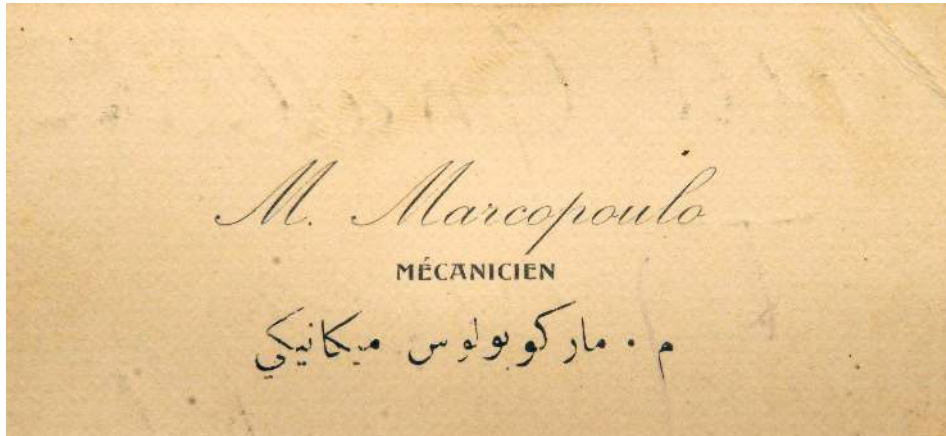 M. Marcopoulo
MÉCANICIEN
م . ماركوبولوس ميكانيكي